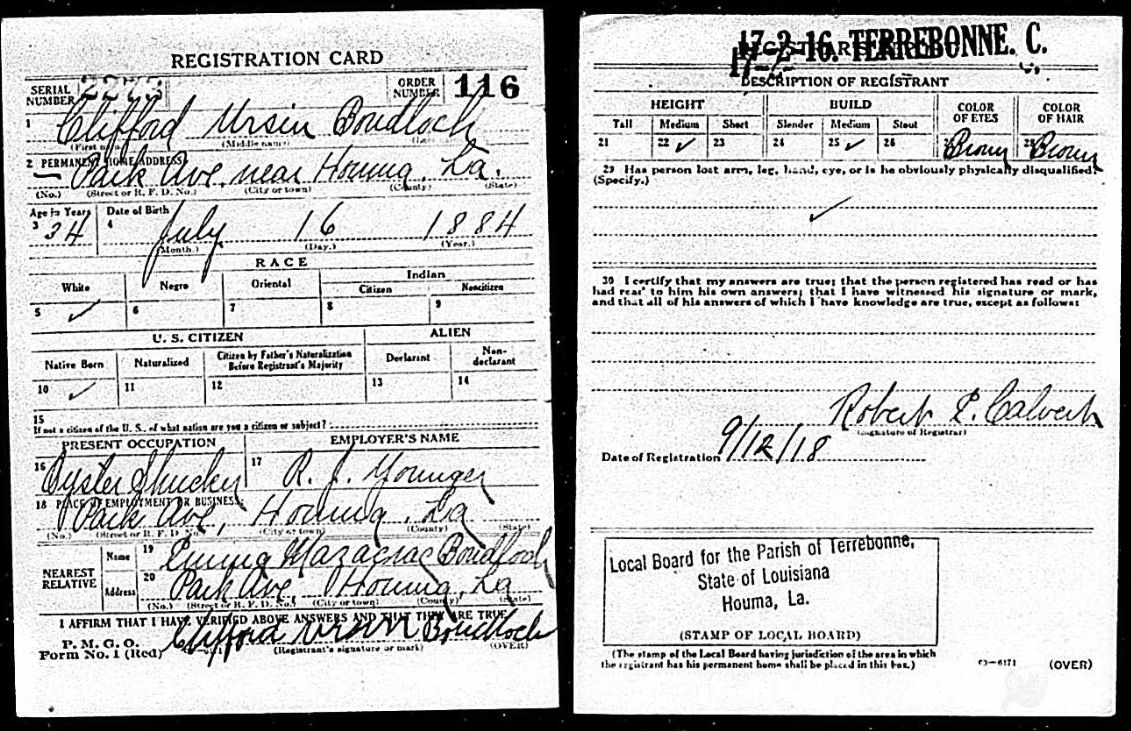 REGISTRATION CARD
SERIAL NUMBER 2273 ORDER NUMBER 116
1 Clifford Ursin Boudloch
(First name) (Middle name)
2 PERMANENT HOME ADDRESS:
— Park Ave. near Houma, La.
(No.) (Street or R. F. D. No.) (City or town) (County) (State)
Age in Years Date of Birth
3 34 4 July 16 1884
(Month.) (Day.) (Year.)
RACE
White Negro Oriental Indian
Citizen Noncitizen
5 ✓ 6 7 8 9
U. S. CITIZEN ALIEN
Native Born Naturalized Citizen by Father's Naturalization Before Registrant's Majority Declarant Non-declarant
10 ✓ 11 12 13 14
15
If not a citizen of the U. S., of what nation are you a citizen or subject?
PRESENT OCCUPATION EMPLOYER'S NAME
16 Oyster Shucker 17 R. J. Younger
18 PLACE OF EMPLOYMENT OR BUSINESS:
Park Ave, Houma, La
(No.) (Street or R. F. D. No.) (City or town) (County) (State)
NEAREST RELATIVE Name 19 Mazacrac Boudloch
Address 20 Park Ave. Houma, La
(No.) (Street or R. F. D. No.) (City or town) (County) (State)
I AFFIRM THAT I HAVE VERIFIED ABOVE ANSWERS AND THAT THEY ARE TRUE
P. M. G. O.
Form No. 1 (Red) Clifford Ursin Boudloch
(Registrant's signature or mark) (OVER)
17-2-16. TERREBONNE. C.
REGISTRAR'S REPORT
DESCRIPTION OF REGISTRANT
HEIGHT BUILD COLOR OF EYES COLOR OF HAIR
Tall Medium Short Slender Medium Stout
21 22 ✓ 23 24 25 ✓ 26 27 Brown 28 Brown
29 Has person lost arm, leg, hand, eye, or is he obviously physically disqualified?
(Specify.)
✓
30 I certify that my answers are true; that the person registered has read or has
had read to him his own answers; that I have witnessed his signature or mark,
and that all of his answers of which I have knowledge are true, except as follows:
Robert P. Calvert
(Signature of Registrar)
Date of Registration 9/12/18
Local Board for the Parish of Terrebonne,
State of Louisiana
Houma, La.
(STAMP OF LOCAL BOARD)
(The stamp of the Local Board having jurisdiction of the area in which
the registrant has his permanent home shall be placed in this box.)
03—6171 (OVER)